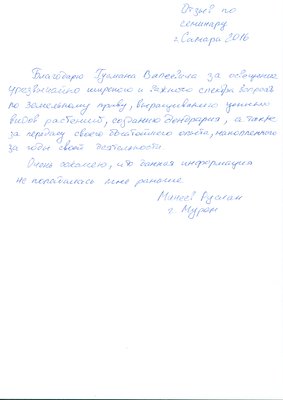 Отзыв по
семинару
г. Самара 2016
Благодарю Валеевича за освещение
чрезвычайно широкого и важного спектра вопросов
по земельному праву, выращиванию ценных
видов растений, созданию дендрария, а также
за передачу своего богатейшего опыта, накопленного
за годы своей деятельности.
Очень сожалею, что данная информация
не попадалась мне раньше.
Руслан
г. Муром